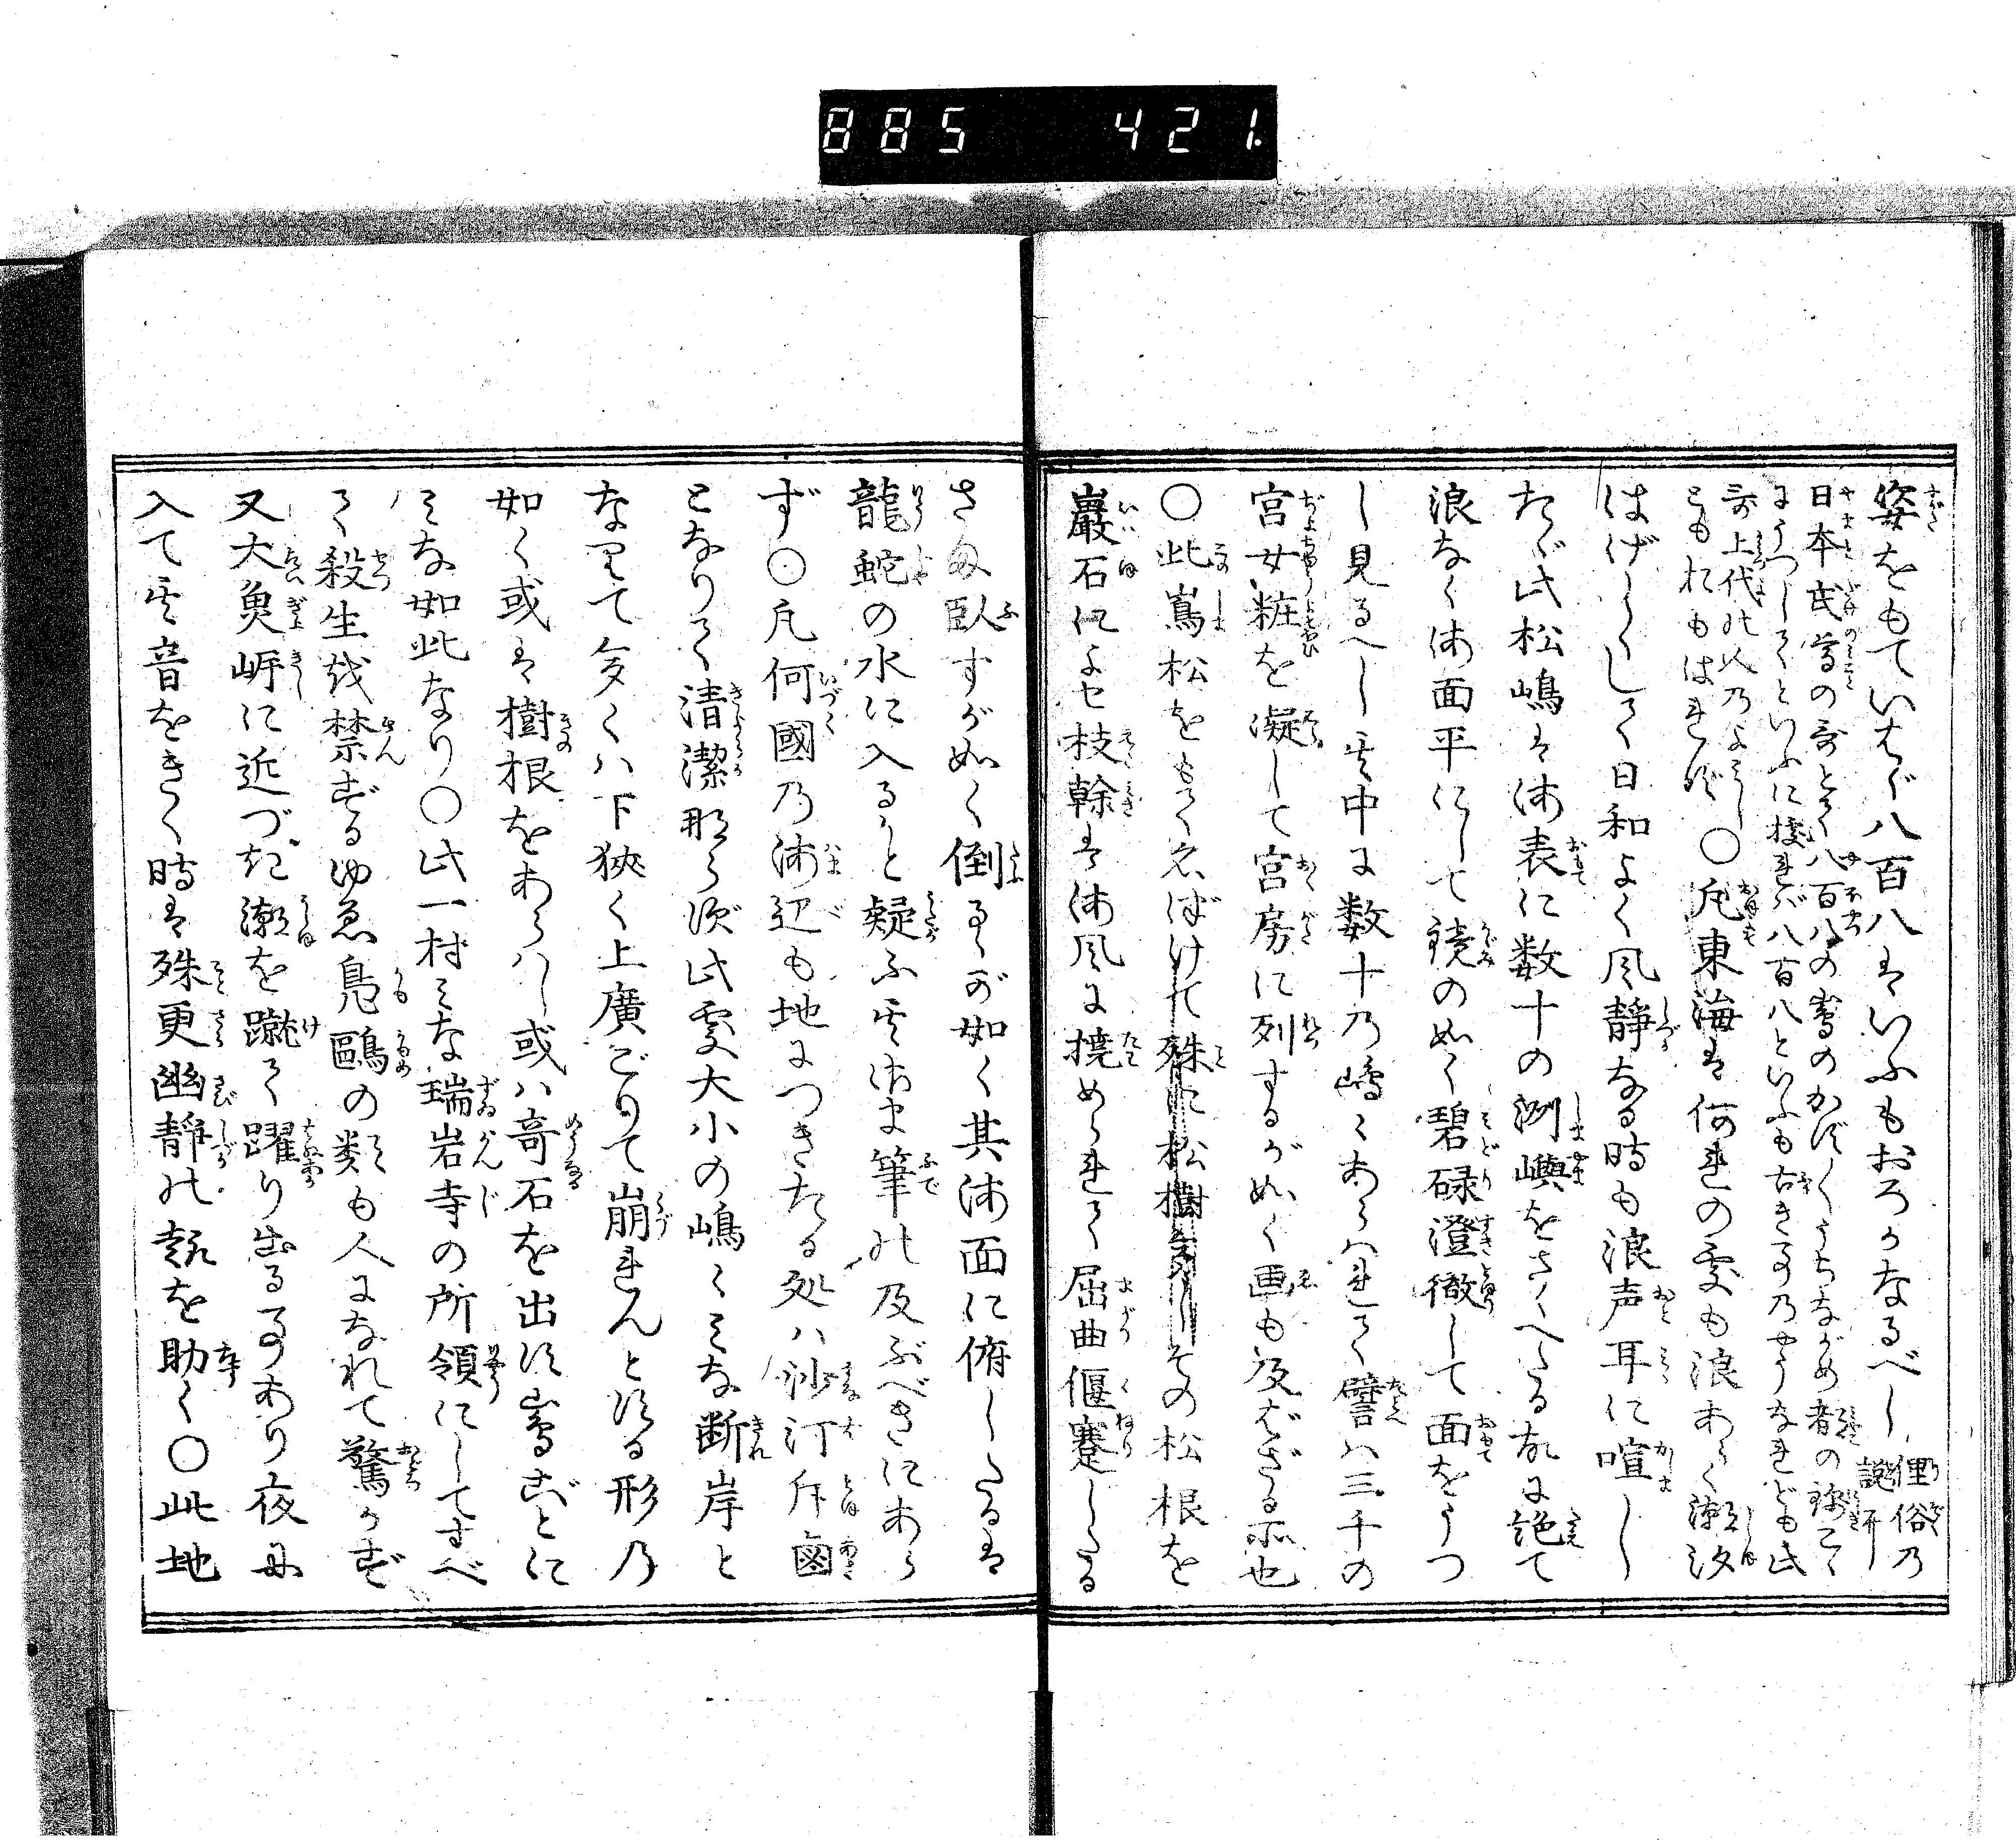 885 421.
姿をもていはゞ八百八はいふもおろかなるべし俚俗乃
説に
日本武尊の哥とて八百八の嶌のかず〳〵うちながめ
にうつしてといふに據れば八百八といふも古き事乃やうなれども此
哥上代の人乃よみし
ともおもはれず○凡東海は何れの處も浪あらく潮汐
はげしくして日和よく風静なる時も浪声耳に喧し
たゞ此松嶋は海表に数十の洲嶼をさゝへたる故に絶て
浪なく海面平にして鏡のめく碧碌澄徹して面をうつ
し見るべし其中に数十乃嶋〻あらはれて譬は三千の
宮女粧を凝して宮房に列するがめく画も及ばざる所也
○此嶌松をもて名ばけて殊に松樹多しその松根を
巖石によせ枝幹は海風に撓められて屈曲偃蹇したる
さ臥すがめく倒るゝが如く其海面に俯したるは
龍蛇の水に入るかと疑ふ其さま筆の及ぶべきにあら
ず○凡何國乃海辺も地につきたる処ハ沙汀斥鹵
となりて清潔ならず此處大小の嶋〻みな断岸と
なりて多くハ下狹く上廣ごりて崩れんとする形乃
如く或は樹根をあらハし或ハ竒石を出す嶌ごとに
みな如此なり○此一村みな瑞岩寺の所領にしてすべ
て殺生を禁ずるゆゑ鳧鷗の类も人になれて驚かず
又大魚岼に近づき潮を蹴て躍り出る事あり夜舟
入て其音をきく時は殊更幽静の趣を助く○此地